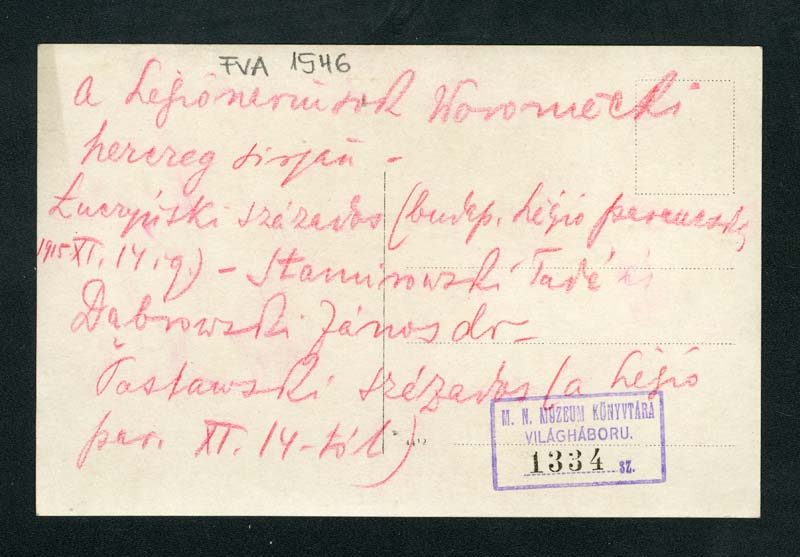 FVA 1546
a Légionariusok Woroniecki
herczeg sirján –
Łuczyński százados (budap. légió
1915 XI. 14. ig.) – Stamirowski Tadé és
Dąbrowski János dr –
százados (a légió
par. XI. 14-től)
M. N. MÚZEUM KÖNYVTÁRA
VILÁGHÁBORU.
1334 sz.